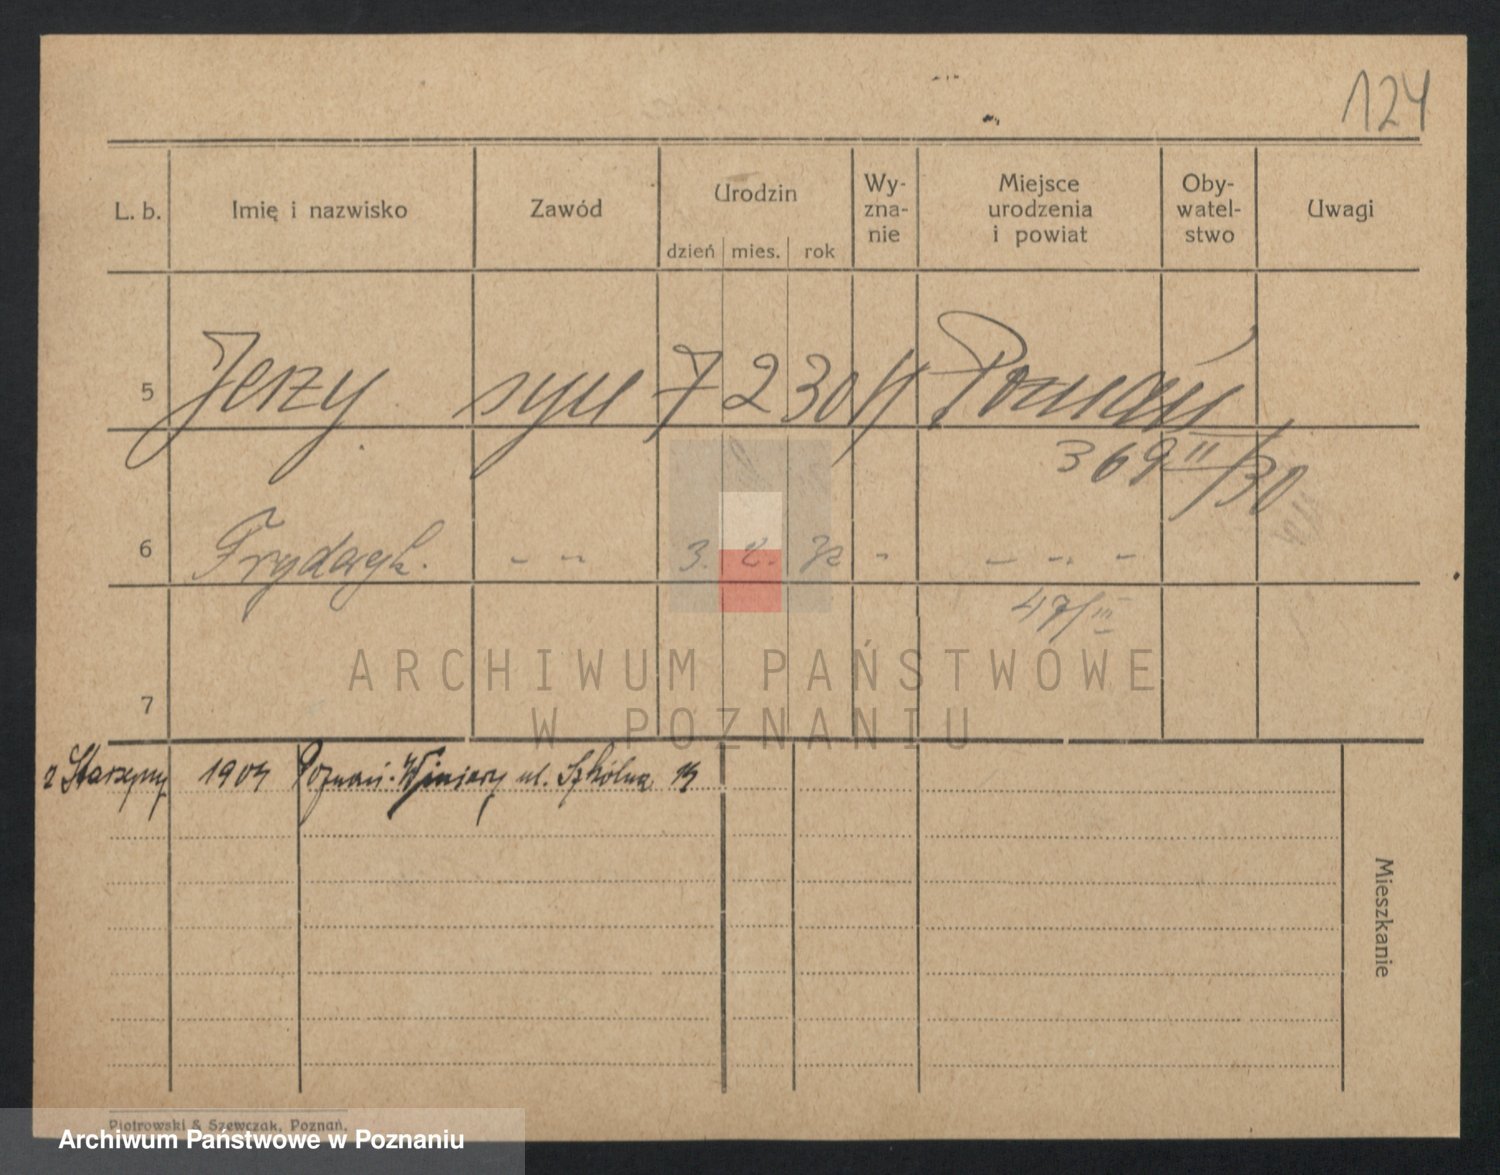 124
L. b. Imię i nazwisko Zawód Urodzin dzień mies. rok Wy-zna-nie Miejsce urodzenia i powiat Oby-watel-stwo Uwagi
5 Jerzy syn 7 2 30 Poznań
369 II/30
6 Fryderyk. - - 3. 2. 32 - - - -
47/III
ARCHIWUM PAŃSTWOWE
W POZNANIU
7
z Starzyny 1904 Poznań-Winiary ul. Szkólna
Mieszkanie
Piotrowski & Szewczak, Poznań.
Archiwum Państwowe w Poznaniu